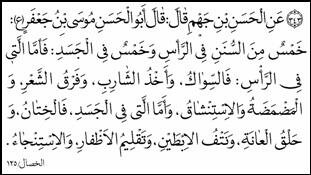 ﴿٣٤٣﴾ عَنِ الْحَسَنِ بْنِ جَهْمٍ قَالَ: قَالَ أَبُو الْحَسَنِ مُوسَى بْنُ جَعْفَرٍ (ع):
خَمْسٌ مِنَ السُّنَنِ فِي الرَّأْسِ وَخَمْسٌ فِي الْجَسَدِ: فَأَمَّا الَّتِي
فِي الرَّأْسِ: فَالسِّوَاكُ، وَأَخْذُ الشَّارِبِ، وَفَرْقُ الشَّعْرِ، وَ
الْمَضْمَضَةُ وَالْاِسْتِنْشَاقُ، وَأَمَّا الَّتِي فِي الْجَسَدِ. فَالْخِتَانُ، وَ
حَلْقُ الْعَانَةِ، وَنَتْفُ الْاِبْطَيْنِ، وَتَقْلِيمُ الْأَظْفَارِ، وَالْاِسْتِنْجَاءُ.
الخصال/١٢٥